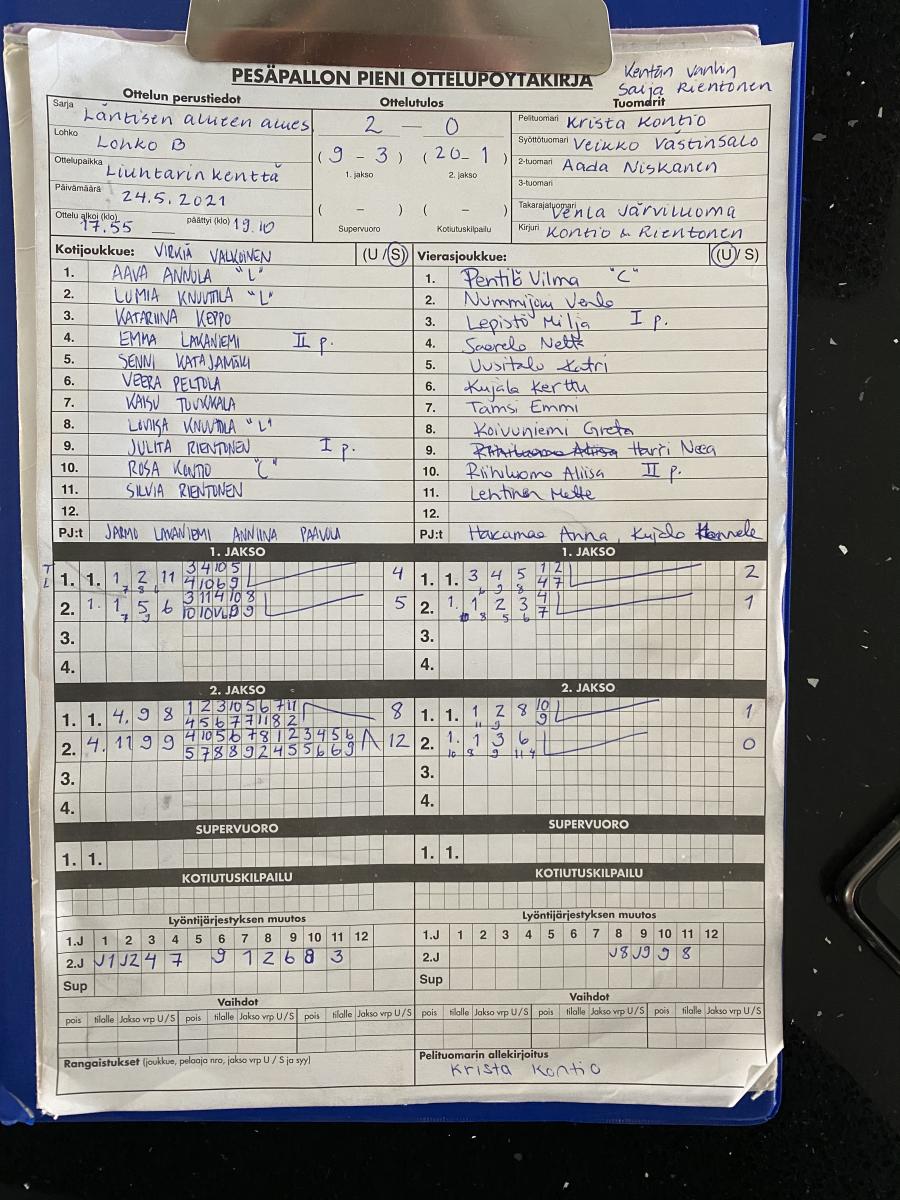 PESÄPALLON PIENI OTTELUPÖYTÄKIRJA
Kentän vanhin
Saija Rientonen
Ottelun perustiedot
Ottelutulos
Tuomarit
Sarja Läntisen alueen alues
Lohko Lohko B
Ottelupaikka Liuhtarin kenttä
Päivämäärä 24.5.2021
Ottelu alkoi (klo) 17.55 päättyi (klo) 19.10
2 – 0
( 9 - 3 ) ( 20 - 1 )
1. jakso 2. jakso
( - ) ( - )
Supervuoro Kotiutuskilpailu
Pelituomari Krista Kontio
Syöttötuomari Veikko Västinsalo
2-tuomari Aada Niskanen
3-tuomari
Takarajatuomari Venla Järviluoma
Kirjuri Kontio & Rientonen
Kotijoukkue: VIRKIÄ VALKOINEN (U / S)
1. AAVA ANNOLA "L"
2. LUMIA KNUUTILA "L"
3. KATARIINA KEPPO
4. EMMA LAKANIEMI II p.
5. SENNI KATAJAMÄKI
6. VEERA PELTOLA
7. KAISU TUUKKALA
8. LOVIISA KNUUTILA "L"
9. JULITA RIENTONEN I p.
10. ROSA KONTIO "C"
11. SILVIA RIENTONEN
12.
PJ:t JARMO LAKANIEMI ANNIINA PAAVOLA
Vierasjoukkue: (U / S)
1. Penttilä Vilma "C"
2. Nummijoki Venla
3. Lepistö Milja I p.
4. Saarela Netta
5. Uusitalo Katri
6. Kujala Kerttu
7. Tamsi Emmi
8. Koivuniemi Greta
9. Riihiluoma Aliisa Harri Neea
10. Riihiluoma Aliisa II p.
11. Lehtinen Mette
12.
PJ:t Hakamaa Anna, Kujala Hannele
1. JAKSO
1. 1. 1 2 11 3 4 10 5 4
7 8 6 4 10 6 9
2. 1. 1 5 6 3 11 4 10 8 5
3.
4.
1. JAKSO
1. 1. 3 4 5 1 2 2
6 9 8 4 7
2. 1. 1 2 3 4 1
8 5 6 7
3.
4.
2. JAKSO
1. 1. 4. 9 8 1 2 3 10 5 6 7 11 8
4 5 6 7 7 11 8 2
2. 4. 11 9 9 4 10 5 6 7 8 1 2 3 4 5 6 12
5 7 8 8 9 2 4 5 5 6 6 9
3.
4.
2. JAKSO
1. 1. 1 2 8 10 1
11 9 9
2. 1. 1 3 6 0
10 8 9 11 4
3.
4.
SUPERVUORO
1. 1.
SUPERVUORO
1. 1.
KOTIUTUSKILPAILU
KOTIUTUSKILPAILU
Lyöntijärjestyksen muutos
1.J 1 2 3 4 5 6 7 8 9 10 11 12
2.J J1 J2 4 7 9 1 2 6 8 3
Sup
Lyöntijärjestyksen muutos
1.J 1 2 3 4 5 6 7 8 9 10 11 12
2.J J8 J9 9 8
Sup
Vaihdot
pois tilalle Jakso vrp U / S pois tilalle Jakso vrp U / S pois tilalle Jakso vrp U / S
Vaihdot
pois tilalle Jakso vrp U / S pois tilalle Jakso vrp U / S pois tilalle Jakso vrp U / S
Rangaistukset (joukkue, pelaaja nro, jakso vrp U / S ja syy)
Pelituomarin allekirjoitus
Krista Kontio